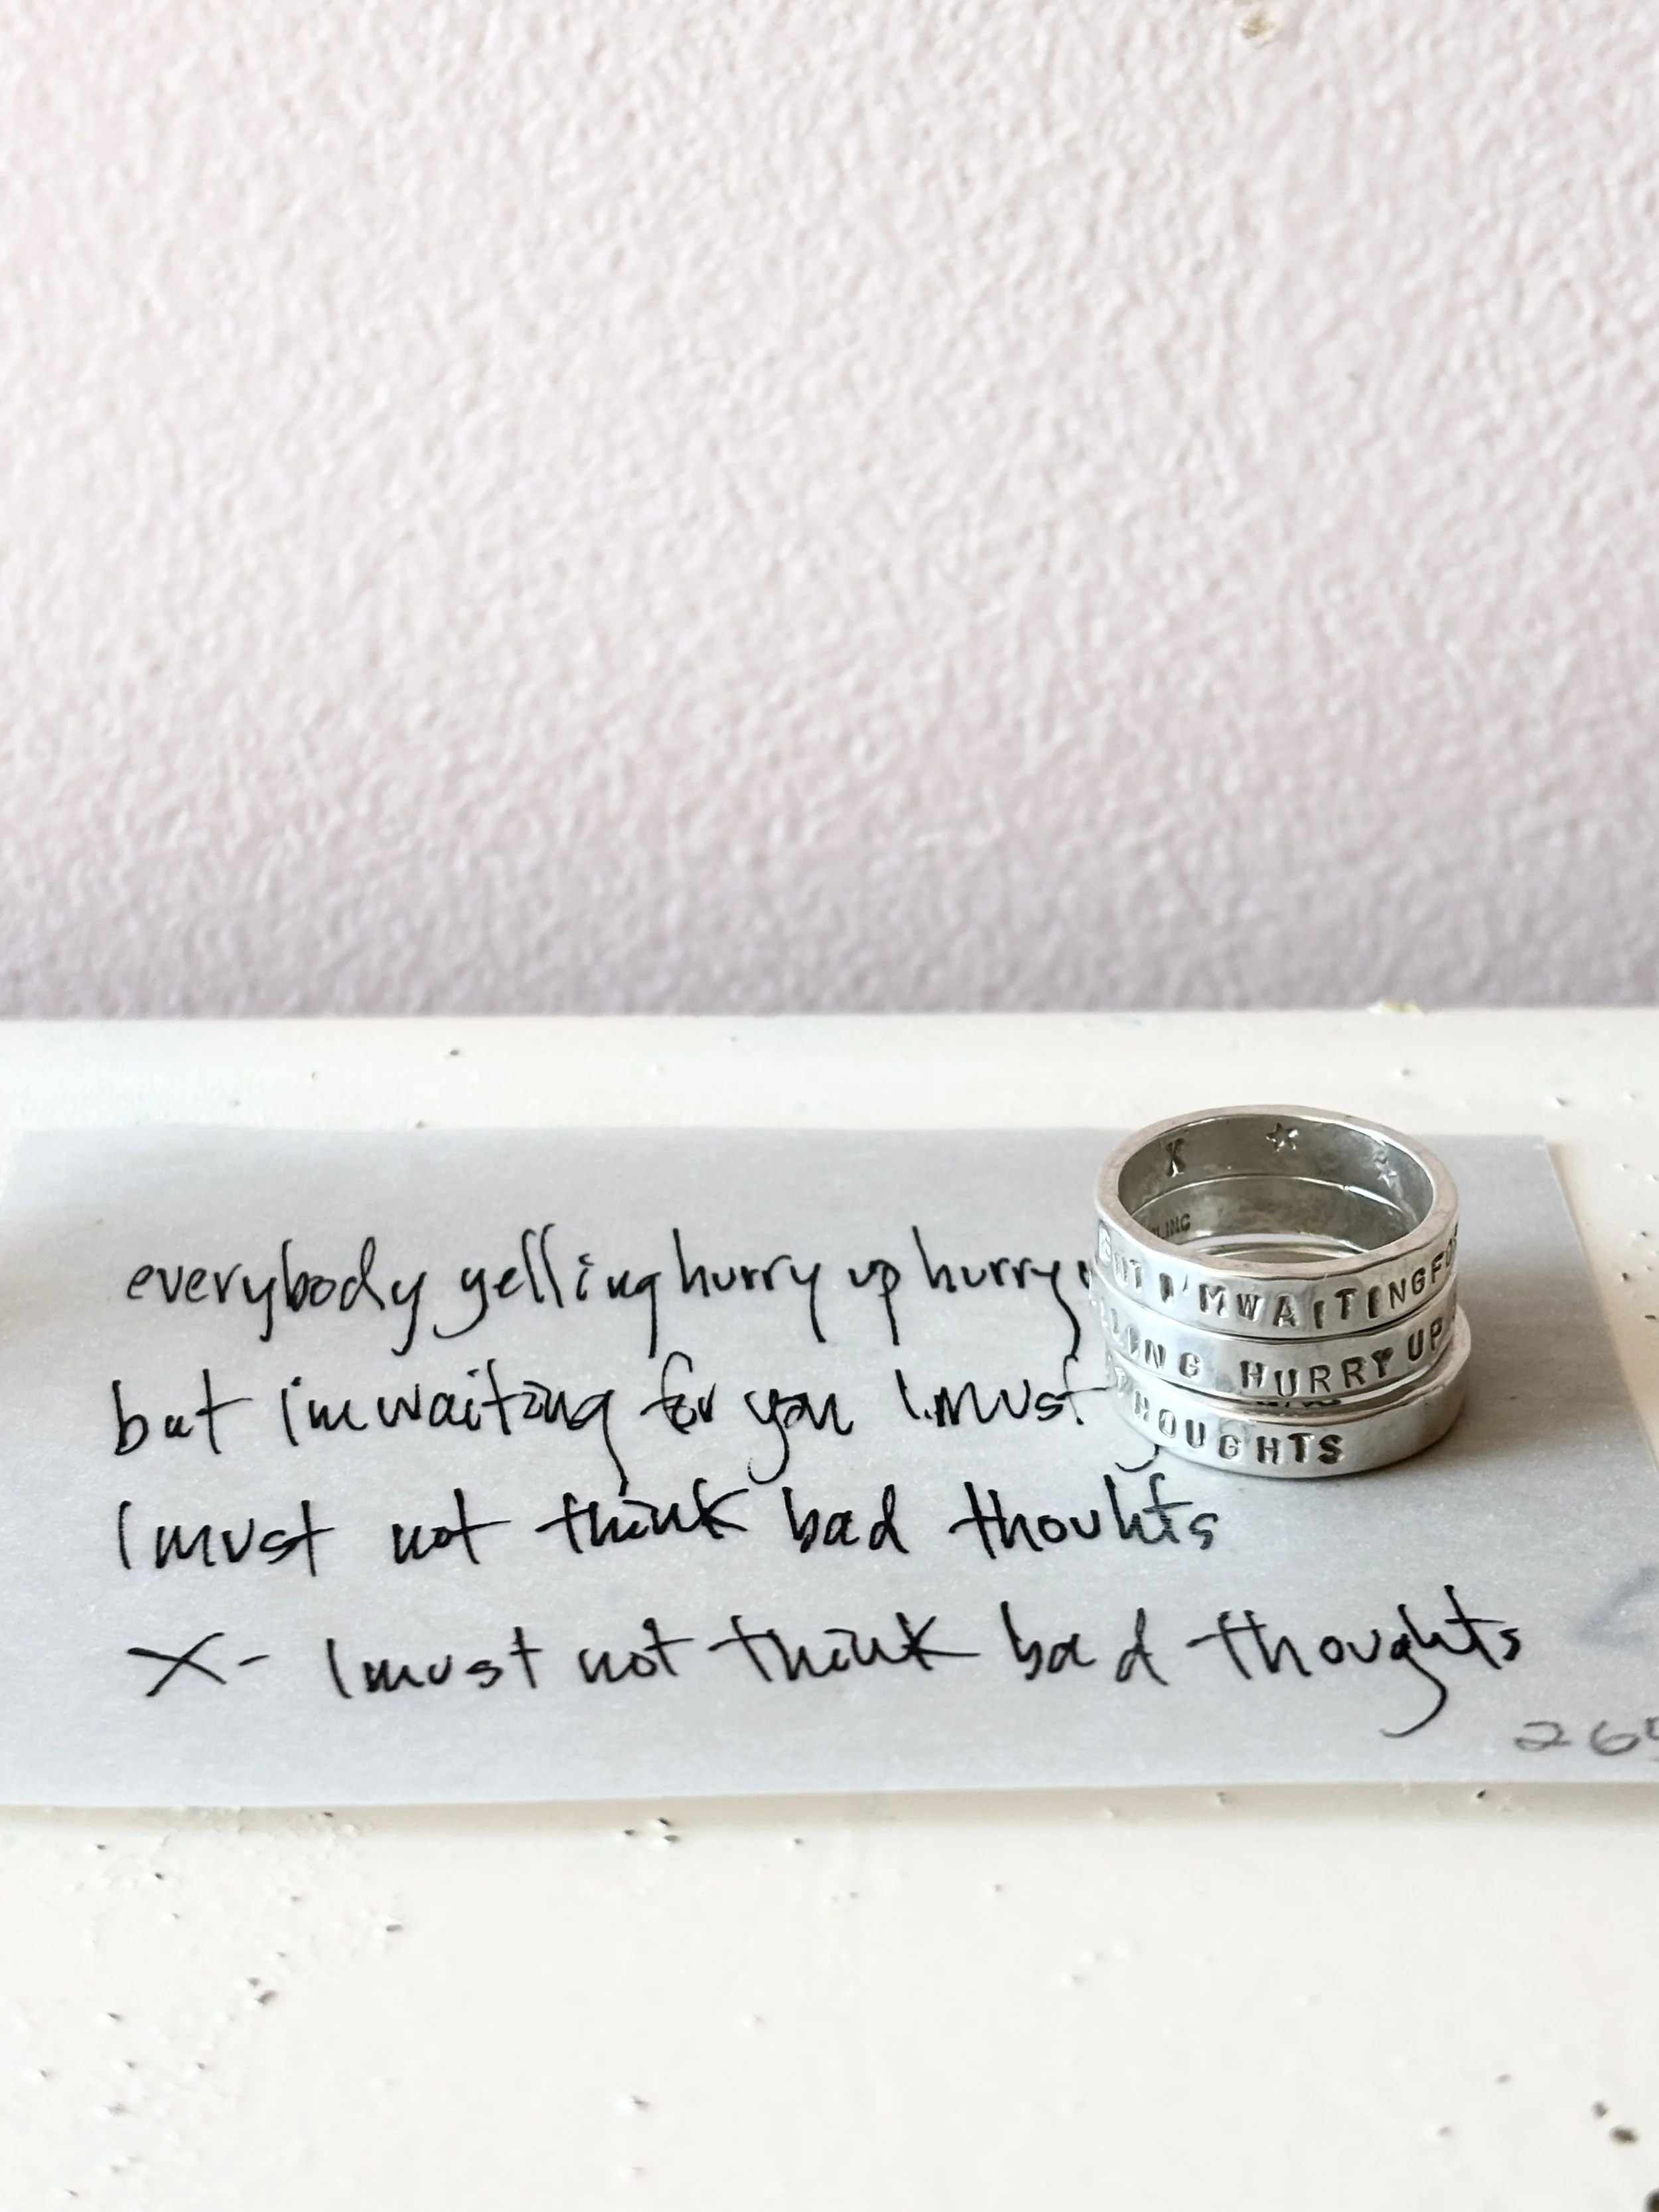 everybody yelling hurry up hurry
but i'm waiting for you I must
I must not think bad thouhts
X- I must not think bad thoughts
X ☆
BUT I'M WAITING FO
LING HURRY UP
THOUGHTS